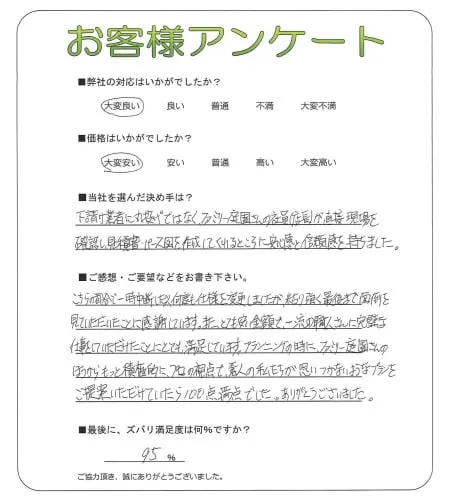 お客様アンケート
■弊社の対応はいかがでしたか？
大変良い 良い 普通 不満 大変不満
■価格はいかがでしたか？
大変安い 安い 普通 高い 大変高い
■当社を選んだ決め手は？
下請け業者に丸投げではなく、ファミリー庭園さんの社員佐司が直接現場を
確認し見積書・パース図を作成してくれるところに安心感と信頼感を持ちました。
■ご感想・ご要望などをお書き下さい。
こちらの都合で一時中断したり何度も仕様を変更しましたが、粘り強く最後まで面倒を
見ていただいたことに感謝しています。また、とても安い金額で、一流の職人さんに完璧な
仕事していただけたことにとても満足しています。プランニングの時に、ファミリー庭園さんの
ほうからもっと積極的に、プロの視点で、素人の私たちが思いつかないようなプランを
ご提案いただけていたら100点満点でした。ありがとうございました。
■最後に、ズバリ満足度は何%ですか？
95 %
ご協力頂き、誠にありがとうございました。